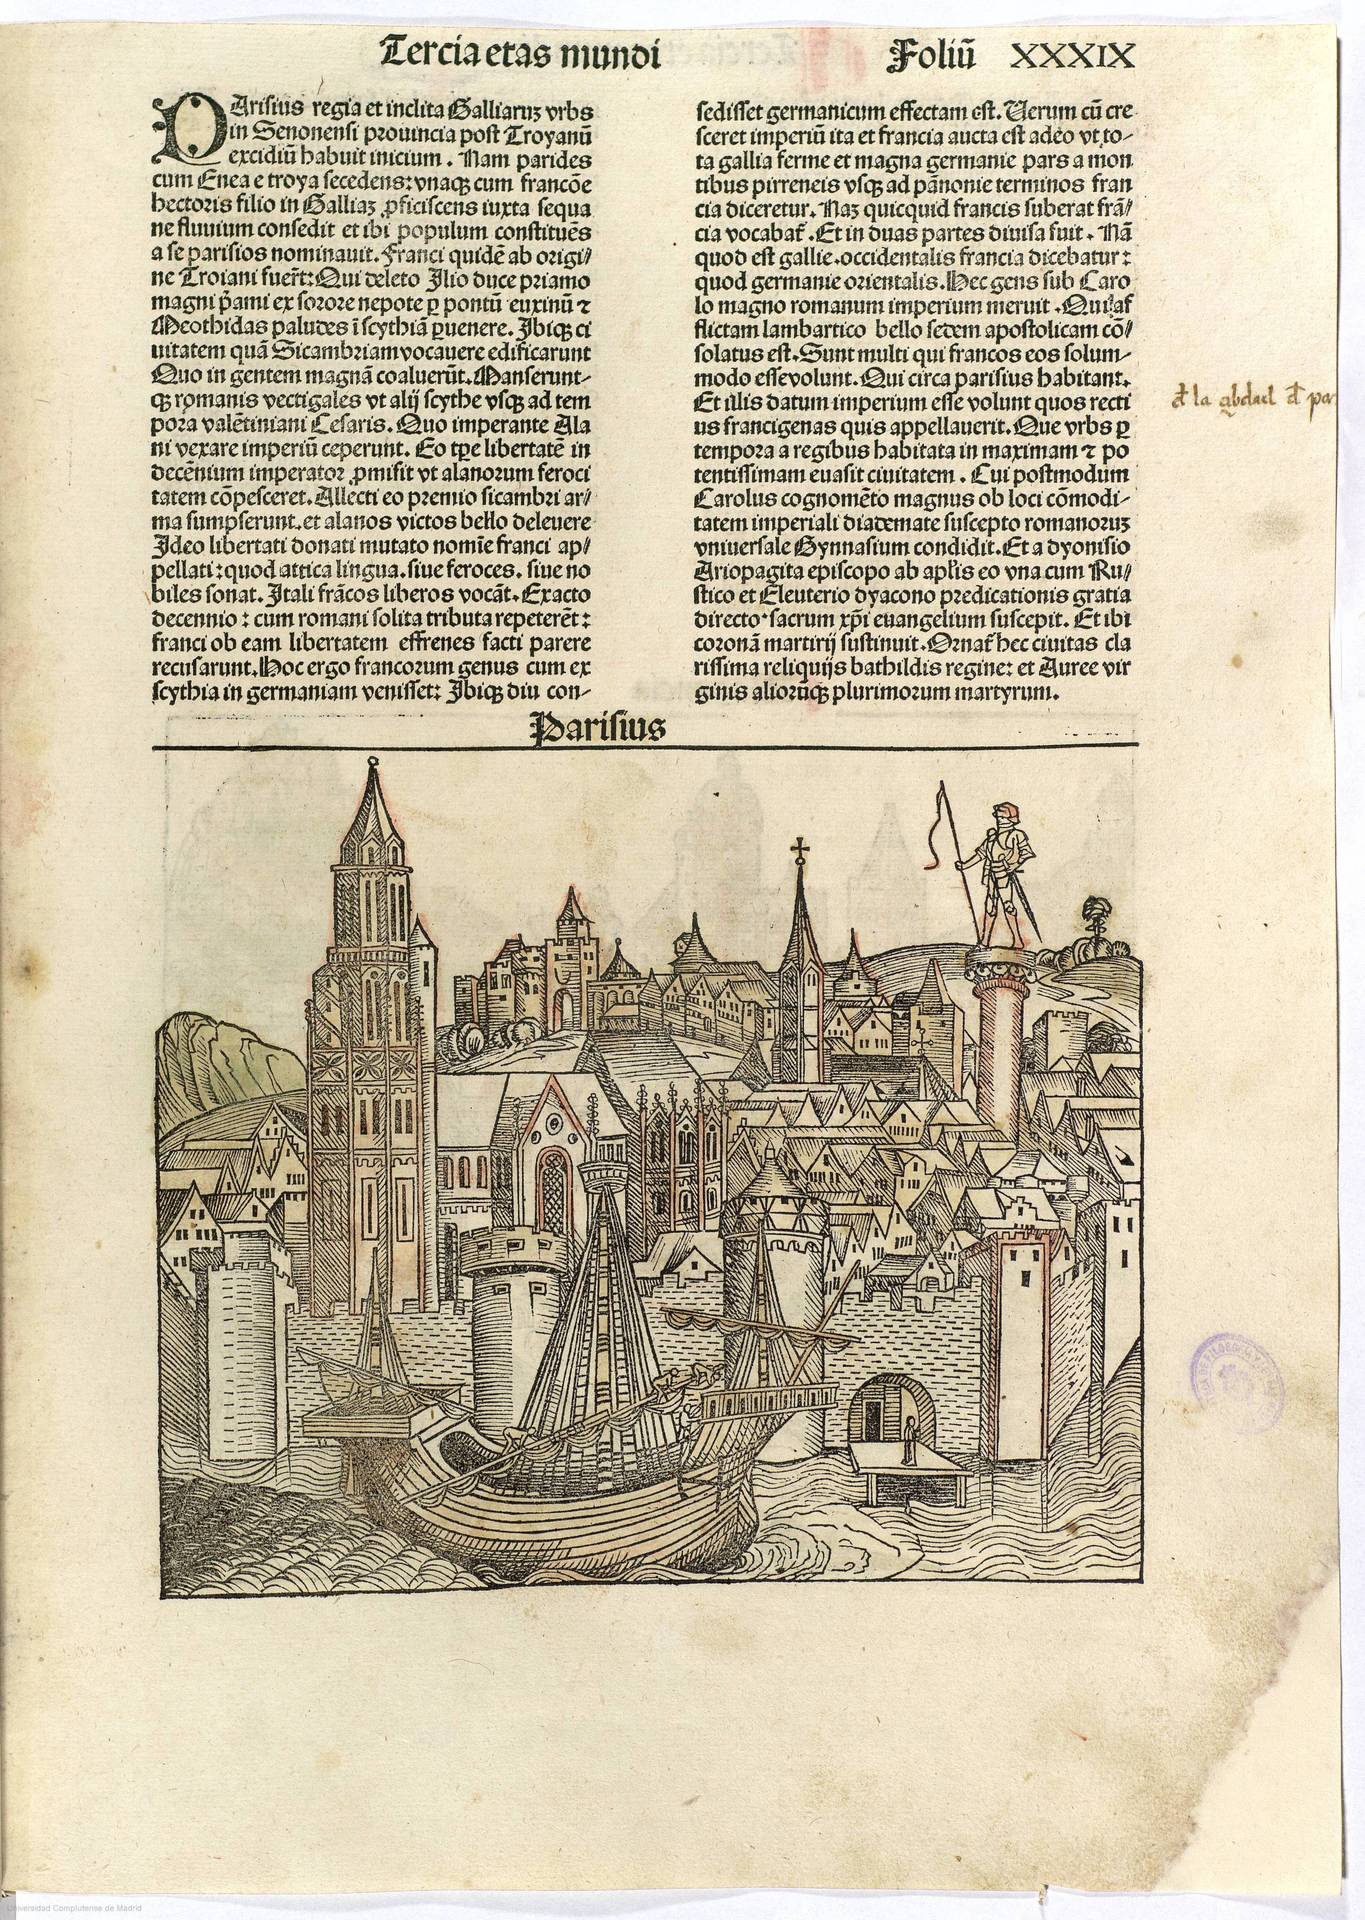 Tercia etas mundi
Foliũ XXXIX
PArisius regia et inclita Galliaruʒ vrbs
in Senonensi prouincia post Troyanũ
excidiũ habuit inicium . Nam parides
cum Enea e troya secedens: vnaqꝫ cum francõe
hectoris filio in Galliaʒ ꝓficiscens iuxta sequa
ne fluuium consedit et ibi populum constituẽs
a se parisios nominauit. Franci quidẽ ab origi/
ne Troiani fuer̃t: Qui deleto Ilio duce priamo
magni p̃ami ex sorore nepote ꝑ pontũ euxinũ ⁊
Meothidas paludes ĩ scythiã ꝑuenere. Ibiqꝫ ci
uitatem quã Sicambriam vocauere edificarunt
Quo in gentem magnã coaluerũt. Manserunt-
qꝫ romanis vectigales vt alij scythe vsqꝫ ad tem
pora valẽtiniani Cesaris. Quo imperante Ala
ni vexare imperiũ ceperunt. Eo tꝑe libertatẽ in
decẽnium imperator ꝓmisit vt alanorum feroci
tatem cõpesceret. Allecti eo premio sicambri ar/
ma sumpserunt. et alanos victos bello deleuere
Ideo libertati donati mutato nomĩe franci ap/
pellati: quod attica lingua. siue feroces. siue no
biles sonat. Itali frãcos liberos vocãt. Exacto
decennio : cum romani solita tributa repeterẽt :
franci ob eam libertatem effrenes facti parere
recusarunt. Hoc ergo francorum genus cum ex
scythia in germaniam venisset: Ibiqꝫ diu con-
sedisset germanicum effectam est. Uerum cũ cre
sceret imperiũ ita et francia aucta est adeo vt to-
ta gallia ferme et magna germanie pars a mon
tibus pirreneis vsqꝫ ad pãnonie terminos fran
cia diceretur. Naʒ quicquid francis suberat frã/
cia vocabat̃ . Et in duas partes diuisa fuit . Nã
quod est gallie. occidentalis francia dicebatur :
quod germanie orientalis. Hec gens sub Caro
lo magno romanum imperium meruit . Qui af
flictam lambartico bello sedem apostolicam cõ/
solatus est. Sunt multi qui francos eos solum-
modo esse volunt. Qui circa parisius habitant.
Et illis datum imperium esse volunt quos recti
us francigenas quis appellauerit. Que vrbs ꝑ
tempora a regibus habitata in maximam ⁊ po
tentissimam euasit ciuitatem . Cui postmodum
Carolus cognomẽto magnus ob loci cõmodi-
tatem imperiali diademate suscepto romanoruʒ
vniuersale Gynnasium condidit. Et a dyonisio
Ariopagita episcopo ab apl̃is eo vna cum Ru/
stico et Eleuterio dyacono predicationis gratia
directo sacrum xp̃i euangelium suscepit. Et ibi
coronã martirij sustinuit. Ornat̃ hec ciuitas cla
rissima reliquijs bathildis regine: et Auree vir
ginis aliorũqꝫ plurimorum martyrum.
Parisius
Universidad Complutense de Madrid